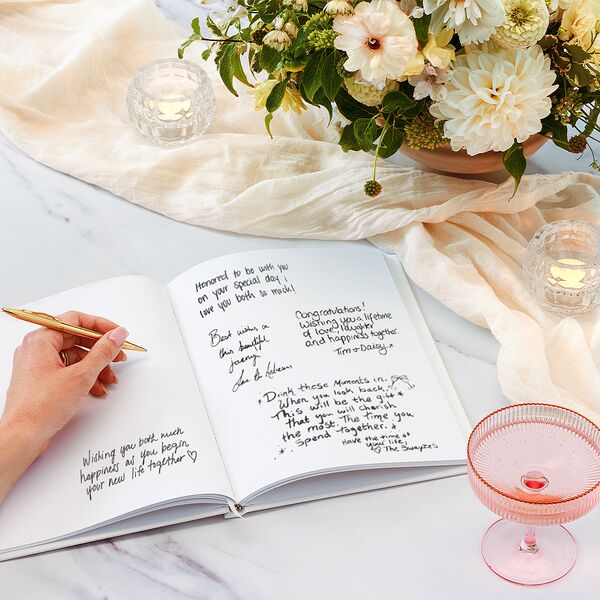 Wishing you both much
happiness as you begin
your new life together ♡
Honored to be with you
on your special day i
love you both so much!
Congratulations!
Wishing you a lifetime
of love, laughter
and happiness together.
Tim + Daisy x
Best wishes on
this beautiful
Drink these moments in.
When you look back,
This will be the gift
that you will cherish
the most. The time you
Spend together.
Have the time of
your life,
♡ The Swayzes